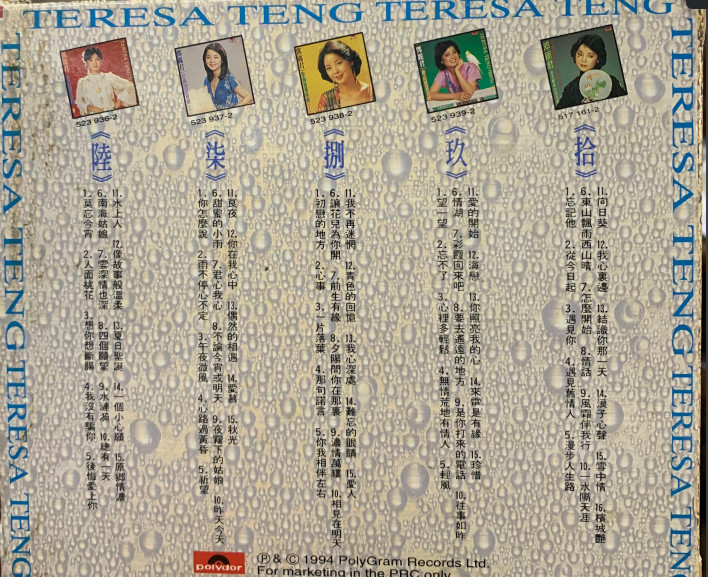 TERESA TENG TERESA TENG
TERESA TENG TERESA TENG
TERESA TENG TERESA TENG
523 936-2
523 937-2
523 938-2
523 939-2
517 161-2
《陸》
1.莫忘今宵 2.人面桃花 3.想你想斷腸 4.我沒有騙你 5.後悔愛上你
6.南海姑娘 7.雲深情也深 8.四個願望 9.水漣漪 10.總有一天
11.水上人 12.像故事般溫柔 13.夏日聖誕 14.一個小心願 15.原鄉情濃
《柒》
1.你怎麼說 2.雨不停心不定 3.午夜微風 4.心路過黃昏 5.祈望
6.甜蜜的小雨 7.君心我心 8.不論今宵或明天 9.夜霧下的姑娘 10.昨天今天
11.良夜 12.你在我心中 13.偶然的相遇 14.愛慕 15.秋光
《捌》
1.初戀的地方 2.心事 3.一片落葉 4.那句諾言 5.你我相伴左右
6.讓花兒為你開 7.前生有緣 8.夕陽問你在那裏 9.濃情萬縷 10.相見在明天
11.我不再迷惘 12.青色的回憶 13.我心深處 14.難忘的眼睛 15.愛人
《玖》
1.望一望 2.忘不了 3.心裡多輕鬆 4.無情荒地有情人 5.輕風
6.情湖 7.彩霞回來吧 8.要去遙遠的地方 9.是你打來的電話 10.往事如昨
11.愛的開始 12.海戀 13.你照亮我的心 14.來電是有緣 15.珍惜
《拾》
1.忘記他 2.從今日起 3.遇見你 4.遇見舊情人 5.漫步人生路
6.東山飄雨西山晴 7.怎麼開始 8.情話 9.風霜伴我行 10.一水隔天涯
11.向日葵 12.我心裏邊 13.結識你那一天 14.浪子心聲 15.雪中情 16.檳城艷
polydor
Ⓟ & © 1994 PolyGram Records Ltd.
For marketing in the PRC only